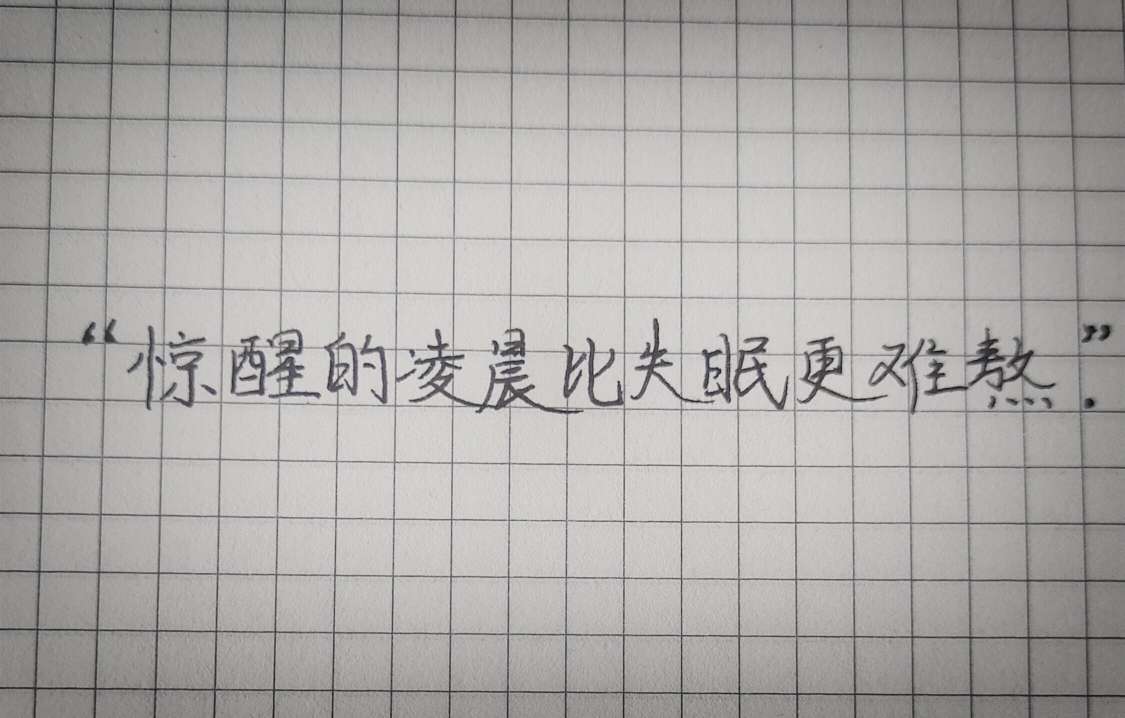 “惊醒的凌晨比失眠更难熬.”